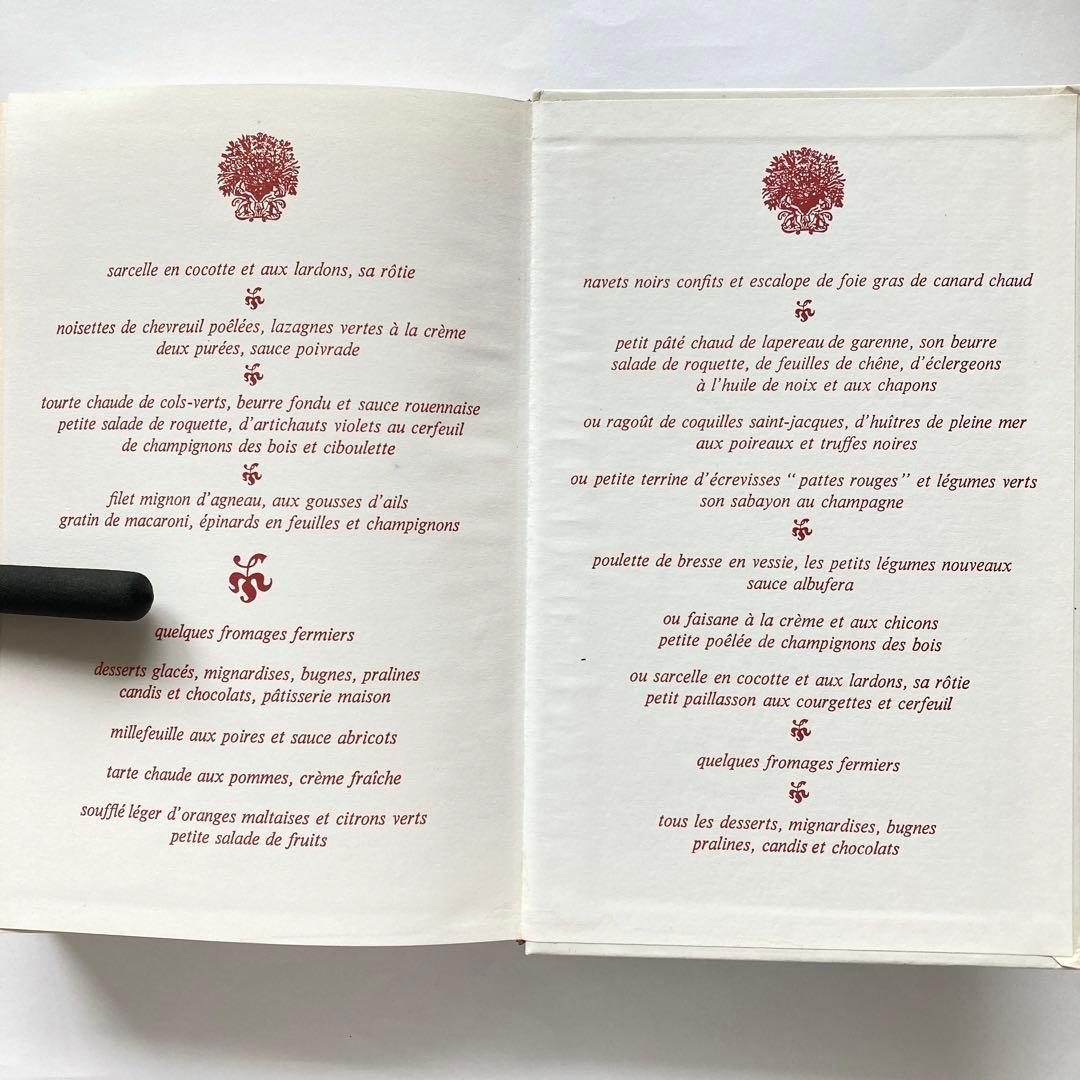 sarcelle en cocotte et aux lardons, sa rôtie
noisettes de chevreuil poêlées, lazagnes vertes à la crème
deux purées, sauce poivrade
tourte chaude de cols-verts, beurre fondu et sauce rouennaise
petite salade de roquette, d'artichauts violets au cerfeuil
de champignons des bois et ciboulette
filet mignon d'agneau, aux gousses d'ails
gratin de macaroni, épinards en feuilles et champignons
quelques fromages fermiers
desserts glacés, mignardises, bugnes, pralines
candis et chocolats, pâtisserie maison
millefeuille aux poires et sauce abricots
tarte chaude aux pommes, crème fraîche
soufflé léger d'oranges maltaises et citrons verts
petite salade de fruits
navets noirs confits et escalope de foie gras de canard chaud
petit pâté chaud de lapereau de garenne, son beurre
salade de roquette, de feuilles de chêne, d'éclergeons
à l'huile de noix et aux chapons
ou ragoût de coquilles saint-jacques, d'huîtres de pleine mer
aux poireaux et truffes noires
ou petite terrine d'écrevisses “ pattes rouges ” et légumes verts
son sabayon au champagne
poulette de bresse en vessie, les petits légumes nouveaux
sauce albufera
ou faisane à la crème et aux chicons
petite poêlée de champignons des bois
ou sarcelle en cocotte et aux lardons, sa rôtie
petit paillasson aux courgettes et cerfeuil
quelques fromages fermiers
tous les desserts, mignardises, bugnes
pralines, candis et chocolats